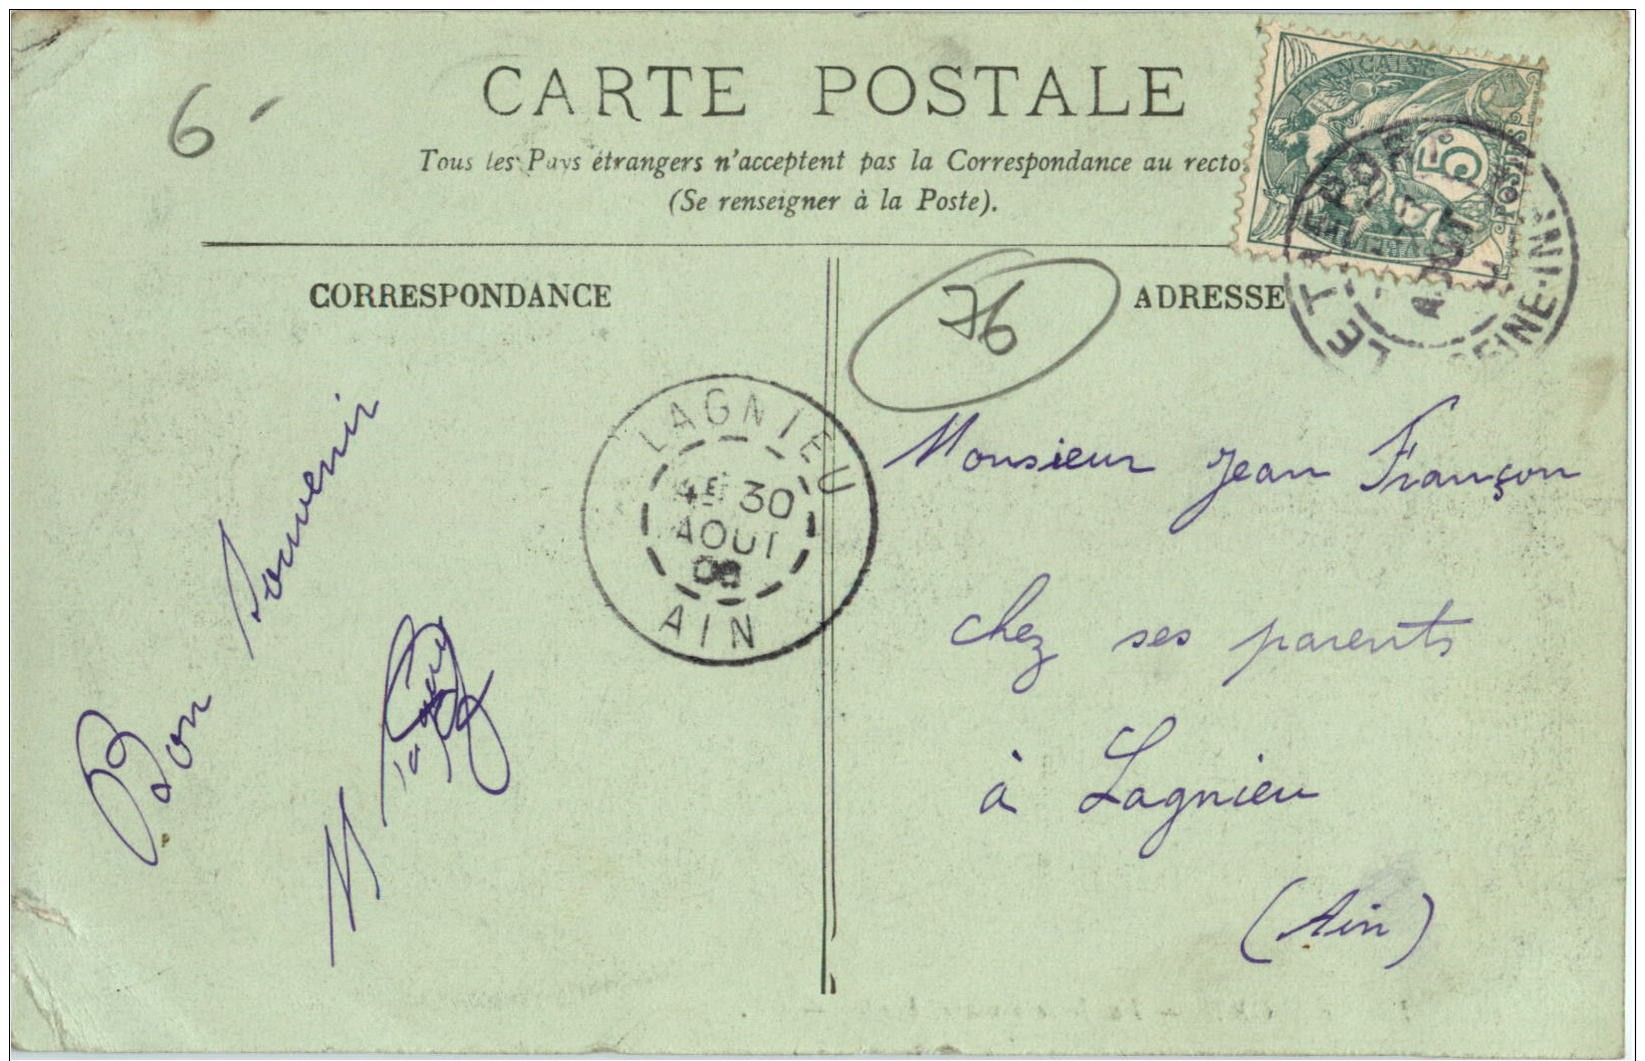 6 -
CARTE POSTALE
Tous les Pays étrangers n'acceptent pas la Correspondance au recto.
(Se renseigner à la Poste).
CORRESPONDANCE
ADRESSE
76
5c
POSTES
SEINE-INF
LAGNIEU
4E 30
AOUT
AIN
Bon souvenir
M
Monsieur Jean Françon
chez ses parents
à Lagnieu
(Ain)